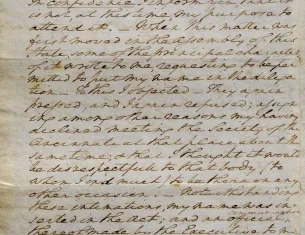 in confidence I inform you, that it
is not, at this time, my purpose to
attend it. — When this matter was
first moved in the Assembly of this
State, some of the principal characters
of it wrote to me, requesting to be per-
mitted to put my name in the delega-
tion. — To this I objected. — They again
pressed, and I again refused; assign-
ing among other reasons my having
declined meeting the Society of the
Cincinnati at that place about the
same time; & that I thought it would
be disrespectfull to that body (to
whom I owed much) to be there on any
other occasion. — Notwithstanding
these intimations, my name was in-
serted in the Act; and an official
thereof made by the Executive to me